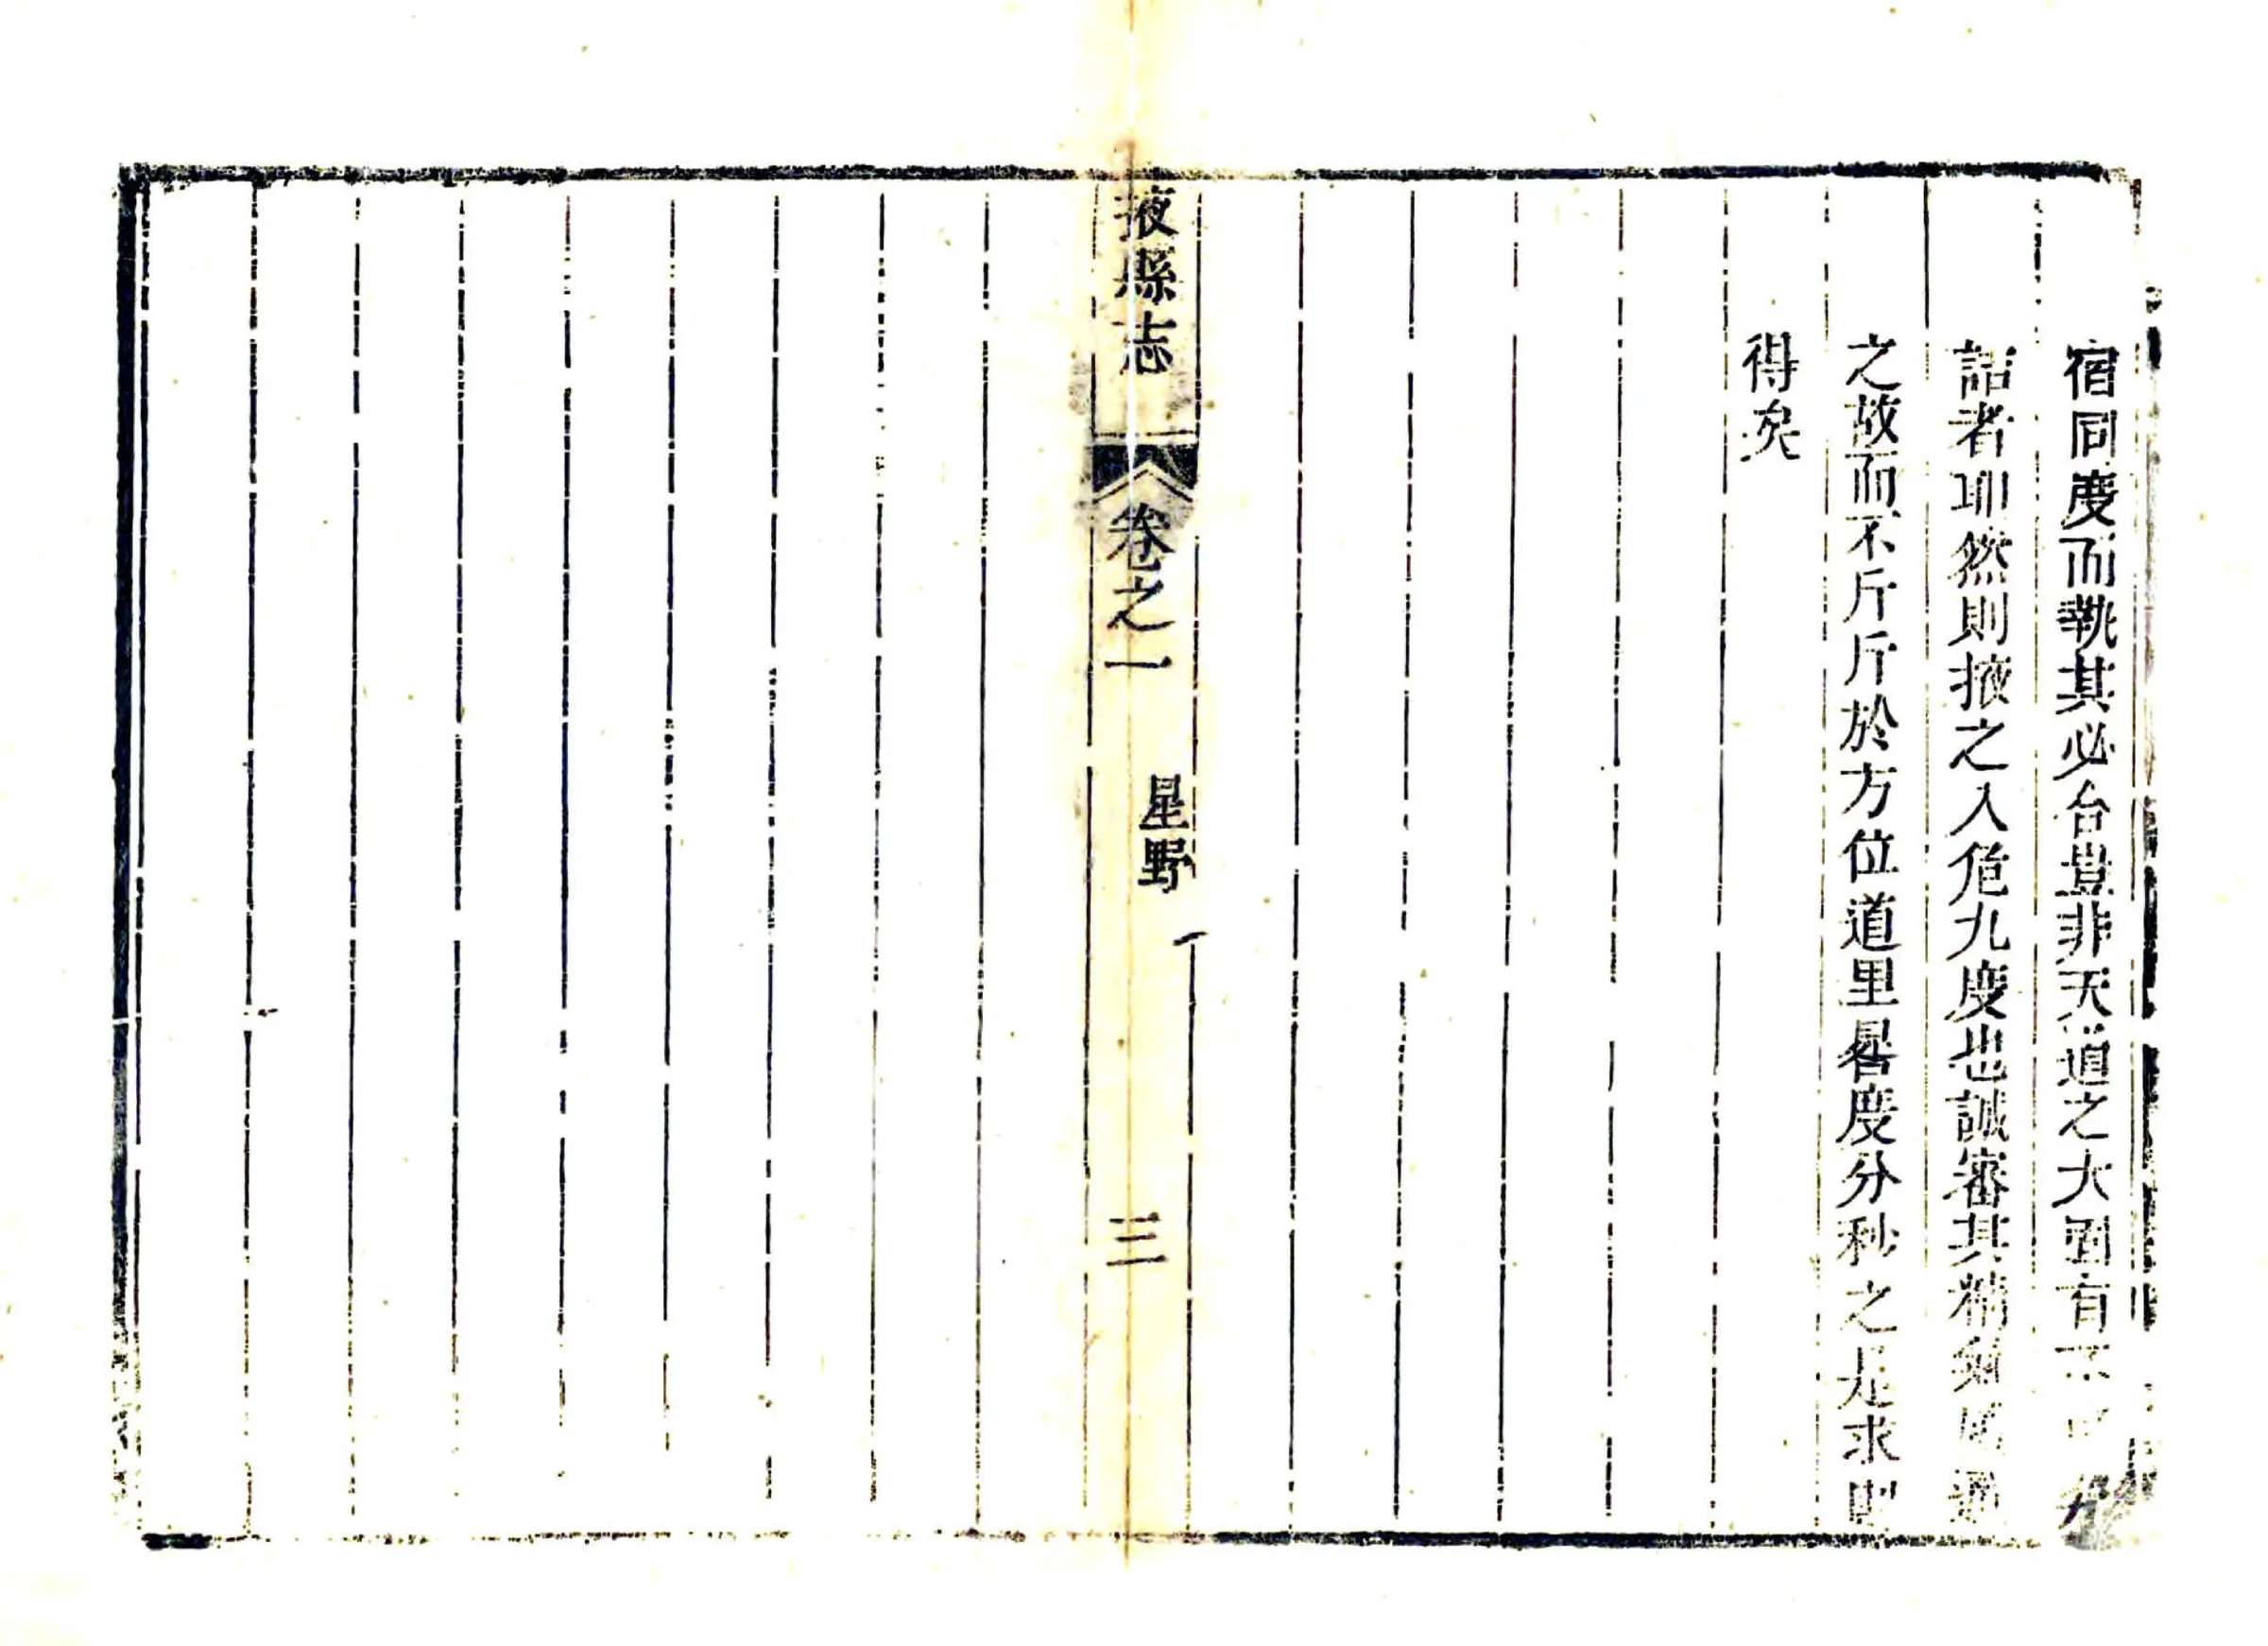 宿同度而執其必合豈非天道之大固有不可
詰者耶然則掖之入危九度也誠審其精
之故而不斤斤於方位道里晷度分秒之是求則
得矣
掖縣志
卷之一
星野
三